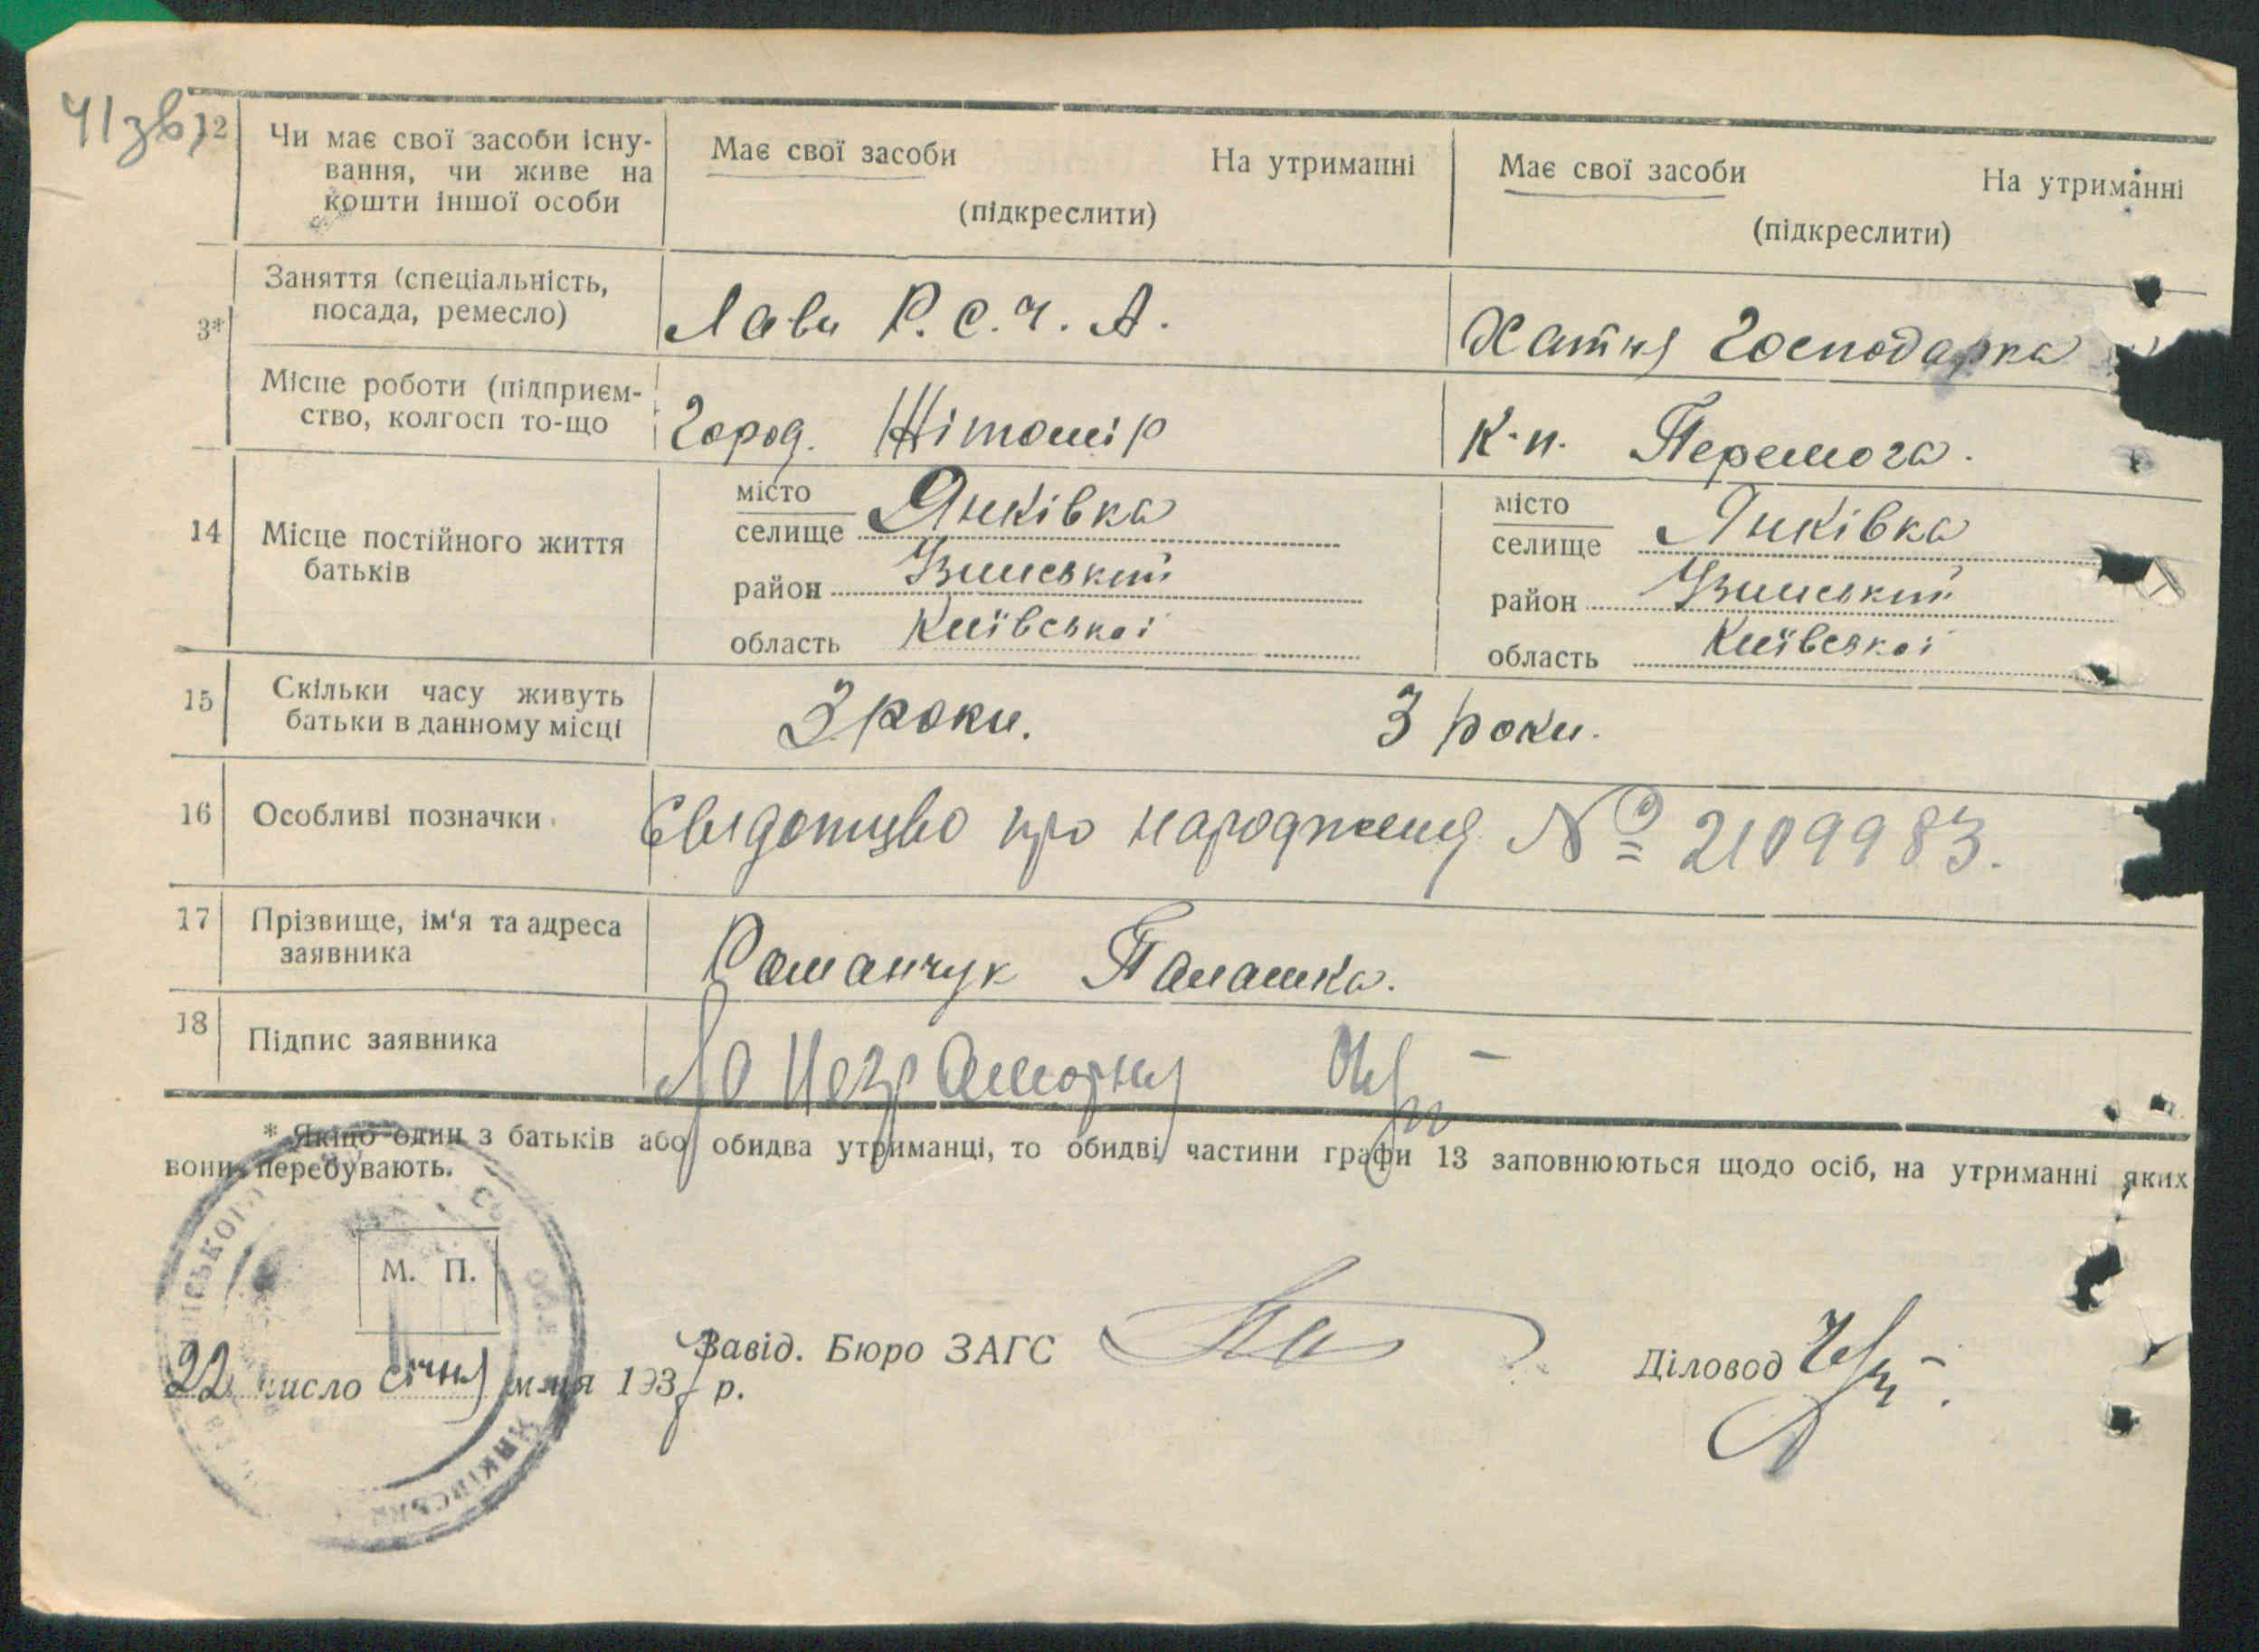 41зв
12 Чи має свої засоби існу-
вання, чи живе на
кошти іншої особи
Має свої засоби На утриманні
(підкреслити)
Має свої засоби На утриманні
(підкреслити)
3* Заняття (спеціальність,
посада, ремесло)
Лави Р.С.Ч.А.
Хатня Господарка
Місце роботи (підприєм-
ство, колгосп то-що
Город. Жітомір
К-п. Перемога.
14 Місце постійного життя
батьків
місто
селище Янківка
район Узинський
область Київської
місто
селище Янківка
район Узинський
область Київської
15 Скільки часу живуть
батьки в данному місці
3 роки. 3 роки.
16 Особливі позначки
Свидотцтво про народження № 2109983.
17 Прізвище, ім'я та адреса
заявника
Романчук Палашка.
18 Підпис заявника
неграмотня
* Якщо один з батьків або обидва утриманці, то обидві частини графи 13 заповнюються щодо осіб, на утриманні яких
вони перебувають.
М. П.
Завід. Бюро ЗАГС
Діловод
22 число січня м-ця 193 р.